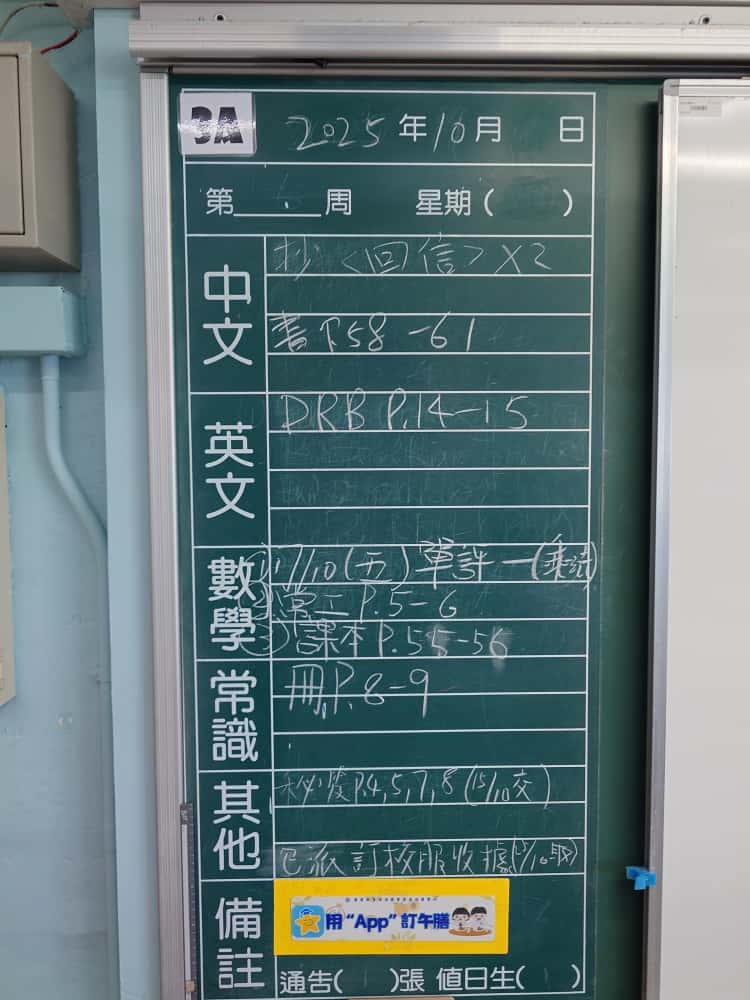 3A 2025年10月 日
第 周 星期( )
中文
抄<回信>X2
書下58-61
英文
DRB P.14-15
數學
①17/10(五)單評一(乘法)
②常工P.5-6
③課本P.55-56
常識
冊P.8-9
其他
P.4,5,7,8(15/10交)
已派訂校服收據(15/10取)
備註
用“App”訂午膳
通告( )張 值日生( )